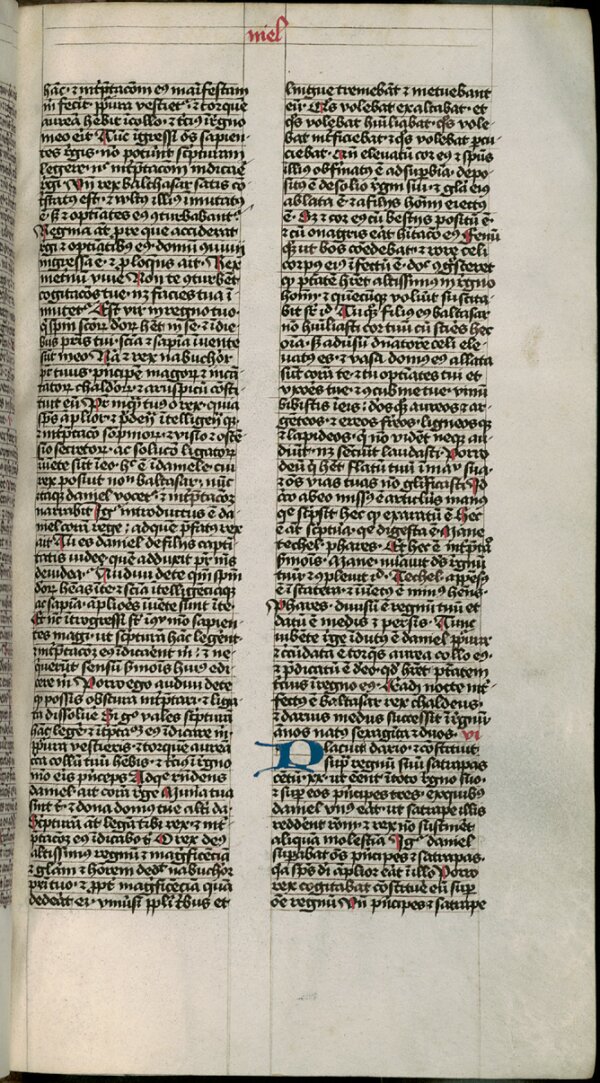 niel
hāc · ⁊ īntp̄tacōm eꝰ maīfestam
m̄ fecit p̱pura vestiet᷑ · ⁊ torque
aureā hēbit ī collo · ⁊ tc̄iꝰ ī rēgno
meo erit Tūc īgressi om̄s sapien
tes rēgis · nō potūnt sc̄pturam
legere · nc̄ īntp̄tacōem īndicāe
rēgi Vn̄ rex balthasar satis cō
tꝰbatꝰ est · ⁊ vultꝰ illiꝰ īmutatꝰ
ē · sꝫ ⁊ optīates eꝰ ꝯturbabant᷑
Regina aūt pro re que acciderat
rēgi ⁊ optīatibꝰ eꝰ · domū ꝯuiuii
ingressa ē · ⁊ p̱loquēs ait · Rex
metnū viue Non te ꝯturbēt
cogitacōes tue · nꝫ facies tua ī
mutet᷑ Est vir in regno tuo ·
q̄ sp̄m scōrꝝ deorꝝ hēt in se · ⁊ ī die
bus pr̄is tui · scīa ⁊ sapīa īuente
sūt in eo · Nā ⁊ rex nabuchodōr
pr̄ tuus · p̄ncipē magorꝝ ⁊ incā
tatorꝝ chaldeorꝝ ⁊ aruspicū cōsti
tuit eū Pr̄ inquā tuꝰ o rex · quia
sp̄s āplior · ⁊ p̄dencia ītelligencia qꝫ
⁊ īntp̄tacō sompniorꝝ · ⁊ visio ⁊ oste
sio secretorꝝ · ac solucō ligatorꝝ
īuēte sūt ī eo · hoc ē ī daniele · cui
rex posuit nomē baltasar · nūc
itaqꝫ daniel vocet᷑ · ⁊ īntp̄tacōꝫ
narrabit Igit᷑ introductus ē da
niel corā rege ; ad quē p̄fatꝰ rex
ait Tu es daniel de filiis capti
tatis iudee quē adduxit pr̄ mꝰ
de iudea Audiui de te qm̄ sp̄m
deorꝝ hēas ī te · ⁊ scīa ītelligēciaqꝫ
ac sapīa · āplioēs īuēte sunt ī te ·
Et nūc ītrogressi sūt ī ꝯspectu mō sapien
tes magi · ut sc̄pturā hāc legerent
⁊ īntp̄tacōꝫ eꝰ īdicarent m̄ : ⁊ ne
querūt sensū sermōis huiꝰ edi
cere m̄ Porro ego audiui de te
q̄ possis obscura īntp̄tari · ⁊ liga
ta dissoluē Si ergo vales sc̄pturā
hāc legē · ⁊ īntp̄tacōꝫ eꝰ īdicare m̄ ·
p̱pura vestieris · ⁊ torquē aureā
circa collū tuū hēbis · ⁊ tc̄iꝰ ī rēgno
mō eis p̄nceps Ad que rn̄dens
daniel · ait corā rege Munā tua
sint tibi · ⁊ dona domꝰ tue alt̄i da ·
Sc̄pturā aūt legā tibi rex · ⁊ īnt
p̄tacōem eꝰ īdicabo tibi O rex deꝰ
altissimꝰ regnū ⁊ mag̃ficēciā
⁊ glam ⁊ honorem dedit nabuchodōr
pri tuo · ⁊ ꝓpt̄ mag̃ficēciā quā
dederat ei · vniūsi ppl̄i tribus et
lingue tremebāt ⁊ metuebant
eū · Q̄s volebat exaltabat · et
q̄s volebat hūiliabat · q̄s vole
bat int̄ficiebat · ⁊ q̄s volebat p̱cu
ciebat · Qn̄ eleuatū cor eꝰ ⁊ sp̄us
illiꝰ obfirmatꝰ ē ad sup̱biā · depo
sitꝰ ē de solio regni sui · ⁊ gl̄a eiꝰ
ablata ē · ⁊ a filijs hom̄ eiectꝰ
ē · Sꝫ ⁊ cor eꝰ cū bestiis positū ē ·
⁊ cū onagris erat hitacō eꝰ Fenū
qꝫ ut bos comedebat · ⁊ rore celi
corpꝰ eiꝰ īfectū ē · donec ꝯgsceret
q̄ ptatē hēret altissimꝰ in regno
hoīm · ⁊ quecūqꝫ volūit suscita
bit sup̱ id Tu qꝫ filiꝰ eiꝰ baltasar
nō huiliasti cor tuū cū scires hec
oīa · sꝫ adūsū dn̄atorē celi ele
uatꝰ es · ⁊ vasa domꝰ eiꝰ allata
sūt corā te · ⁊ tu optīates tui et
vxores tue · ⁊ ꝯcubine tue · vinū
bibistis ī eis : deos qꝫ aureos ⁊ ar
gēteos · ⁊ ereos ferreos · ligneosqꝫ
⁊ lapideos · q̄ nō vident neqꝫ au
diunt · nꝫ senciūt laudasti · Porro
deū q̄ hēt flatū tuū ī manu sua
⁊ om̄s vias tuas nō glificasti · Id
circo ab eo missꝰ ē articulꝰ manꝰ
que sc̄psit hec que exaratū ē Hec
ē aūt sc̄ptura · que digesta ē · Mane
techel · phares · Et hec ē int̄p̄tacō
sermōis · Mane · nūauit deꝰ regnū
tuū ⁊ ꝯpleuit id · Techel · appesꝰ
ē ī statera · ⁊ īuētꝰ ē minꝰ hēns ·
Phares · diuisū ē regnū tuū et
datū ē medis ⁊ persis · Tunc
iubēte rege īdutꝰ ē daniel p̱pura
⁊ cūdata ē torqs aurea collo eꝰ ·
⁊ p̄dicatū ē de eo · qd hēret ptatem
tciꝰ ī regno eꝰ · Eadē nocte int̄
fectꝰ ē baltasar rex chaldeus ·
⁊ darius medus successit ī regnū ·
annos natꝰ sexagita ⁊ duos · vi
Placuit dario · ⁊ cōstituit
sup̱ regnū suū satrapas
cētū · xx · ut eent ī toto regno suo ·
⁊ sup̱ eos p̄ncipes tres · ex quibꝰ
daniel vnꝰ erat · ut satrape illis
redderent rōnem · ⁊ rex nō sustineret
aliquā molestiā Igit᷑ daniel
supābat om̄s p̄ncipes ⁊ satrapas ·
qa sp̄s dei āplior erat ī illo Porro
rex cogitabat cōstituē eū sup̱
om̄e regnū Vn̄ p̄ncipes ⁊ satrape